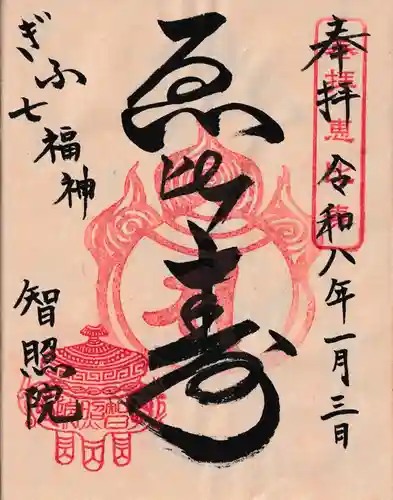 奉拝 令和八年一月三日
ゑ比寿
ぎふ七福神
智照院